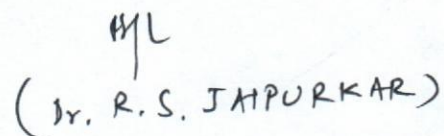 ( Dr. R. S. JAIPURKAR )